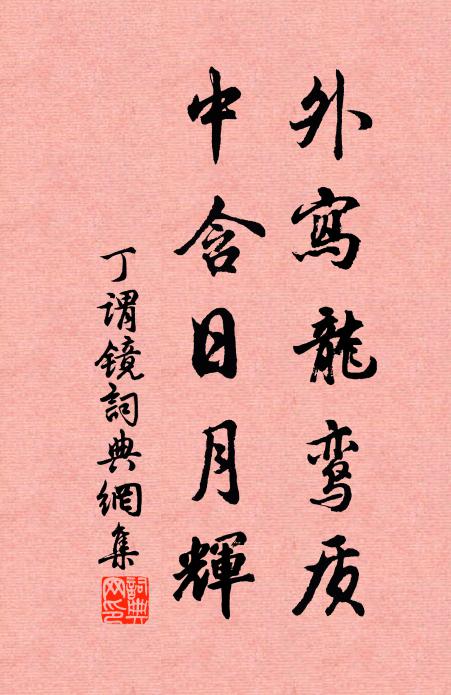 外寫龍鸾质
中含日月輝
丁谓镜詞典網集
詞典网印